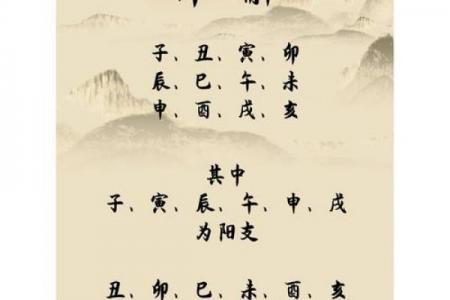 子、丑、寅、卯
辰、巳、午、未
申、酉、戌、亥
其中
子、寅、辰、午、申、戌
为阳支
丑、卯、巳、未、酉、亥